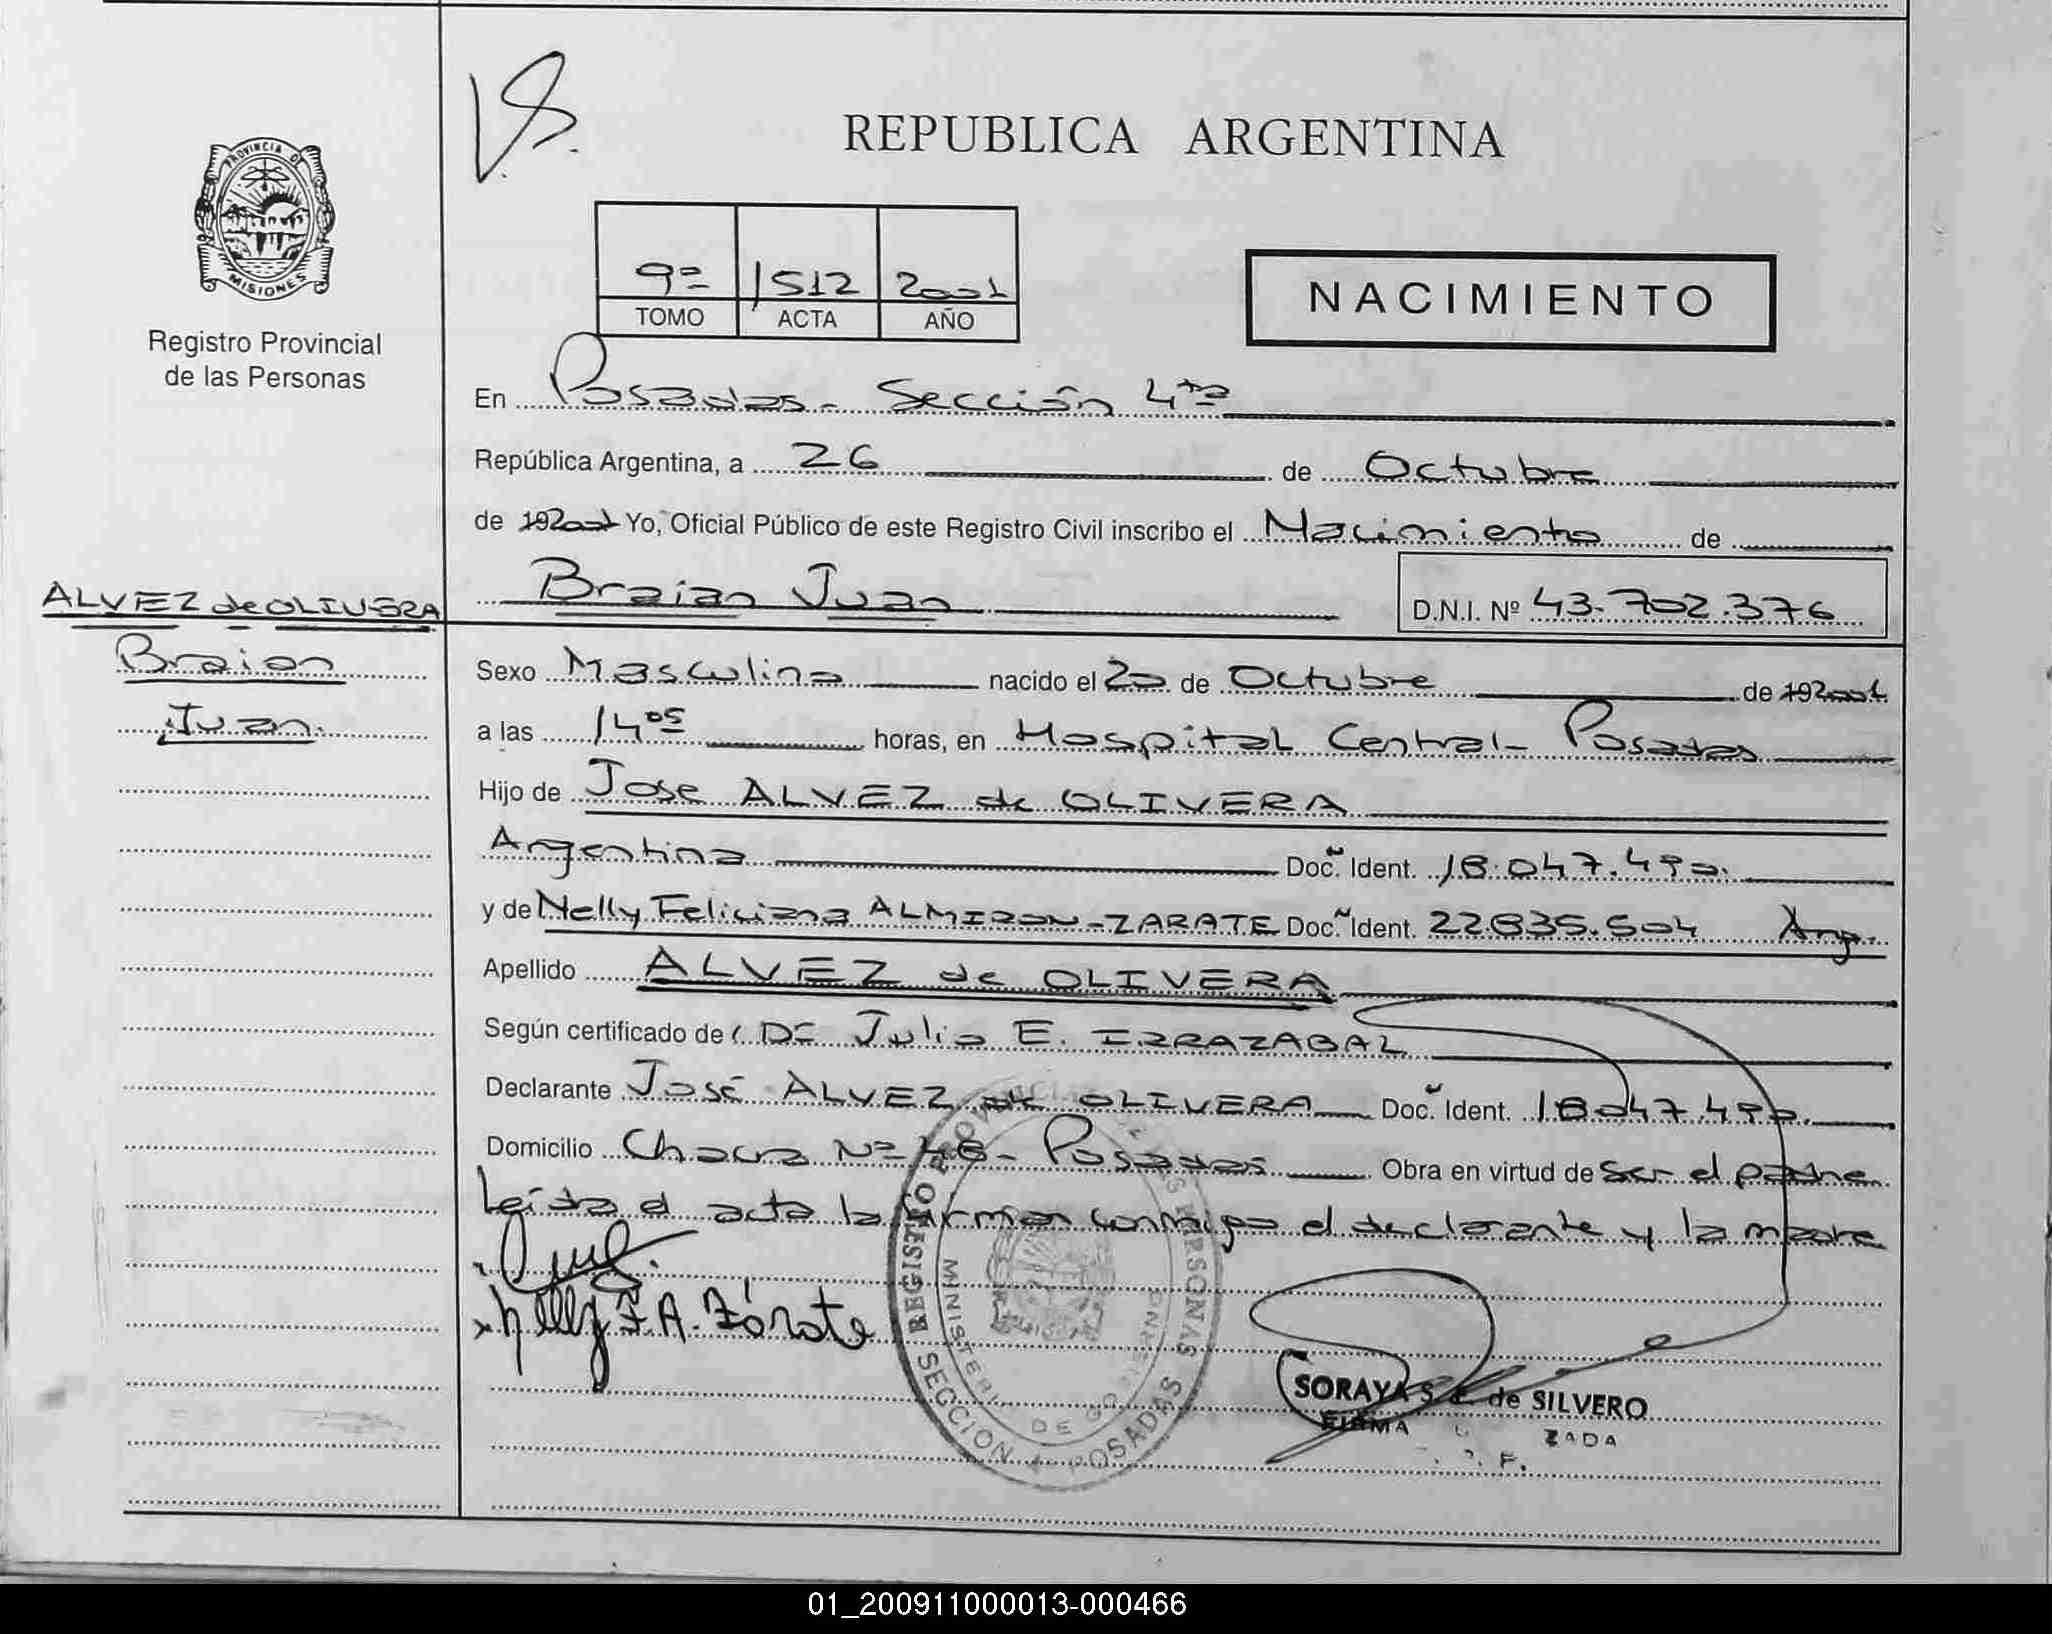 V.B.
REPUBLICA ARGENTINA
PROVINCIA DE
MISIONES
Registro Provincial
de las Personas
9º 1512 2001
TOMO ACTA AÑO
NACIMIENTO
En Posadas - Sección 4ta
República Argentina, a 26 de Octubre
de 192001 Yo, Oficial Público de este Registro Civil inscribo el Nacimiento de
Braian Juan D.N.I. Nº 43.702.376
ALVEZ de OLIVERA
Braian
Juan.
Sexo Masculino nacido el 20 de Octubre de 192001
a las 14 05 horas, en Hospital Central - Posadas
Hijo de Jose ALVEZ de OLIVERA
Argentina Doc. Ident. 18.047.490.
y de Nelly Feliciana ALMIRON-ZARATE Doc. Ident. 22.835.504 Arg.
Apellido ALVEZ de OLIVERA
Según certificado de Julio E. IRRAZABAL
Declarante José ALVEZ de OLIVERA Doc. Ident. 18.047.490.
Domicilio Chacra Nº 48 - Posadas Obra en virtud de ser el padre
Leida el acta la firman conmigo el declarante y la madre
Nelly F. A. Zárate
REGISTRO PROVINCIAL DE LAS PERSONAS
MINISTERIO DE GOBIERNO
SECCION 4 POSADAS
SORAYA S. de SILVERO
FIRMA ZADA
01_200911000013-000466